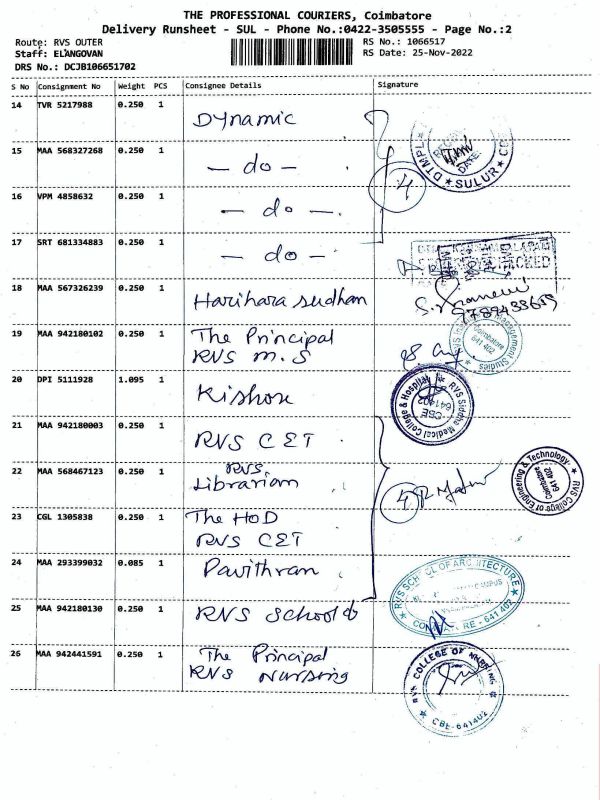 THE PROFESSIONAL COURIERS, Coimbatore
Delivery Runsheet - SUL - Phone No.:0422-3505555 - Page No.:2
Route: RVS OUTER
Staff: ELANGOVAN
DRS No.: DCJB106651702
RS No.: 1066517
RS Date: 25-Nov-2022
S No Consignment No Weight PCS Consignee Details Signature
14 TVR 5217988 0.250 1 Dynamic
DTMPL SULUR DATE:
15 MAA 568327268 0.250 1 - do -
4
16 VPM 4858632 0.250 1 - do -
17 SRT 681334883 0.250 1 - do -
18 MAA 567326239 0.250 1 Harihara sudhan
19 MAA 942180102 0.250 1 The Principal
RVS M.S
Management Studies
Coimbatore
641 402
20 DPI 5111928 1.095 1 Kishore
RVS Siddha Medical College & Hospital
CBE
641402
21 MAA 942180003 0.250 1 RVS CET
22 MAA 568467123 0.250 1 RVS
Librarian
RVS College of Engineering & Technology
Coimbatore
641 402
23 CGL 1305838 0.250 1 The HOD
RVS CET
24 MAA 293399032 0.085 1 Pavithran
25 MAA 942180130 0.250 1 RVS School of
RVS SCHOOL OF ARCHITECTURE
CAMPUS
COIMBATORE - 641 402
26 MAA 942441591 0.250 1 The Principal
RVS Nursing
RVS COLLEGE OF NURSING
CBE-641402